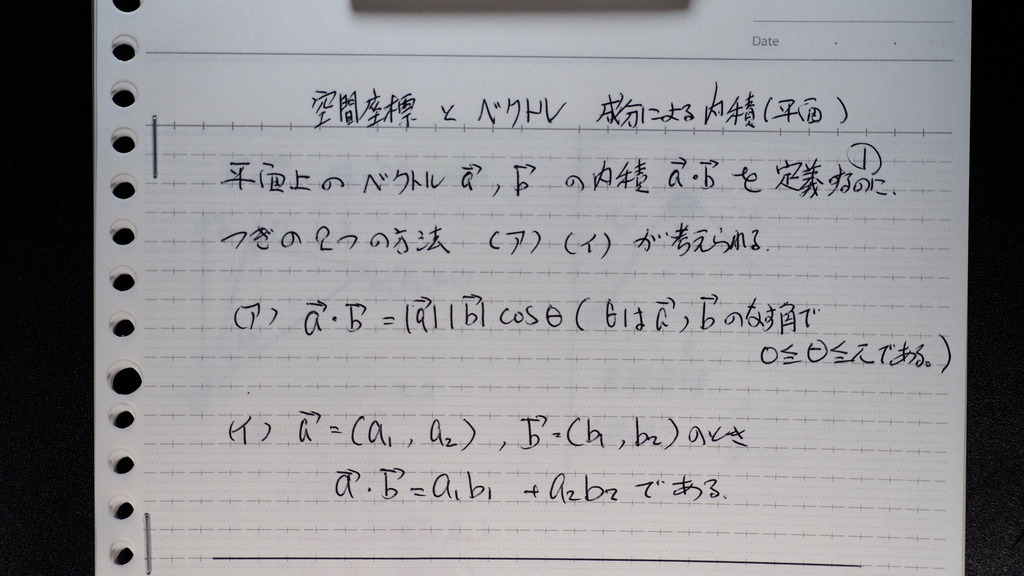 Date
空間座標 と ベクトル 成分による内積(平面)
①
平面上の ベクトル a→, b→ の内積 a→・b→ を 定義するのに、
つぎの2つの方法 (ア)(イ) が考えられる.
(ア) a→・b→ = |a→||b→| cosθ ( θは a→, b→ のなす角で
0≦θ≦πである。)
(イ) a→ = (a₁, a₂), b→ = (b₁, b₂) のとき
a→・b→ = a₁b₁ + a₂b₂ である.